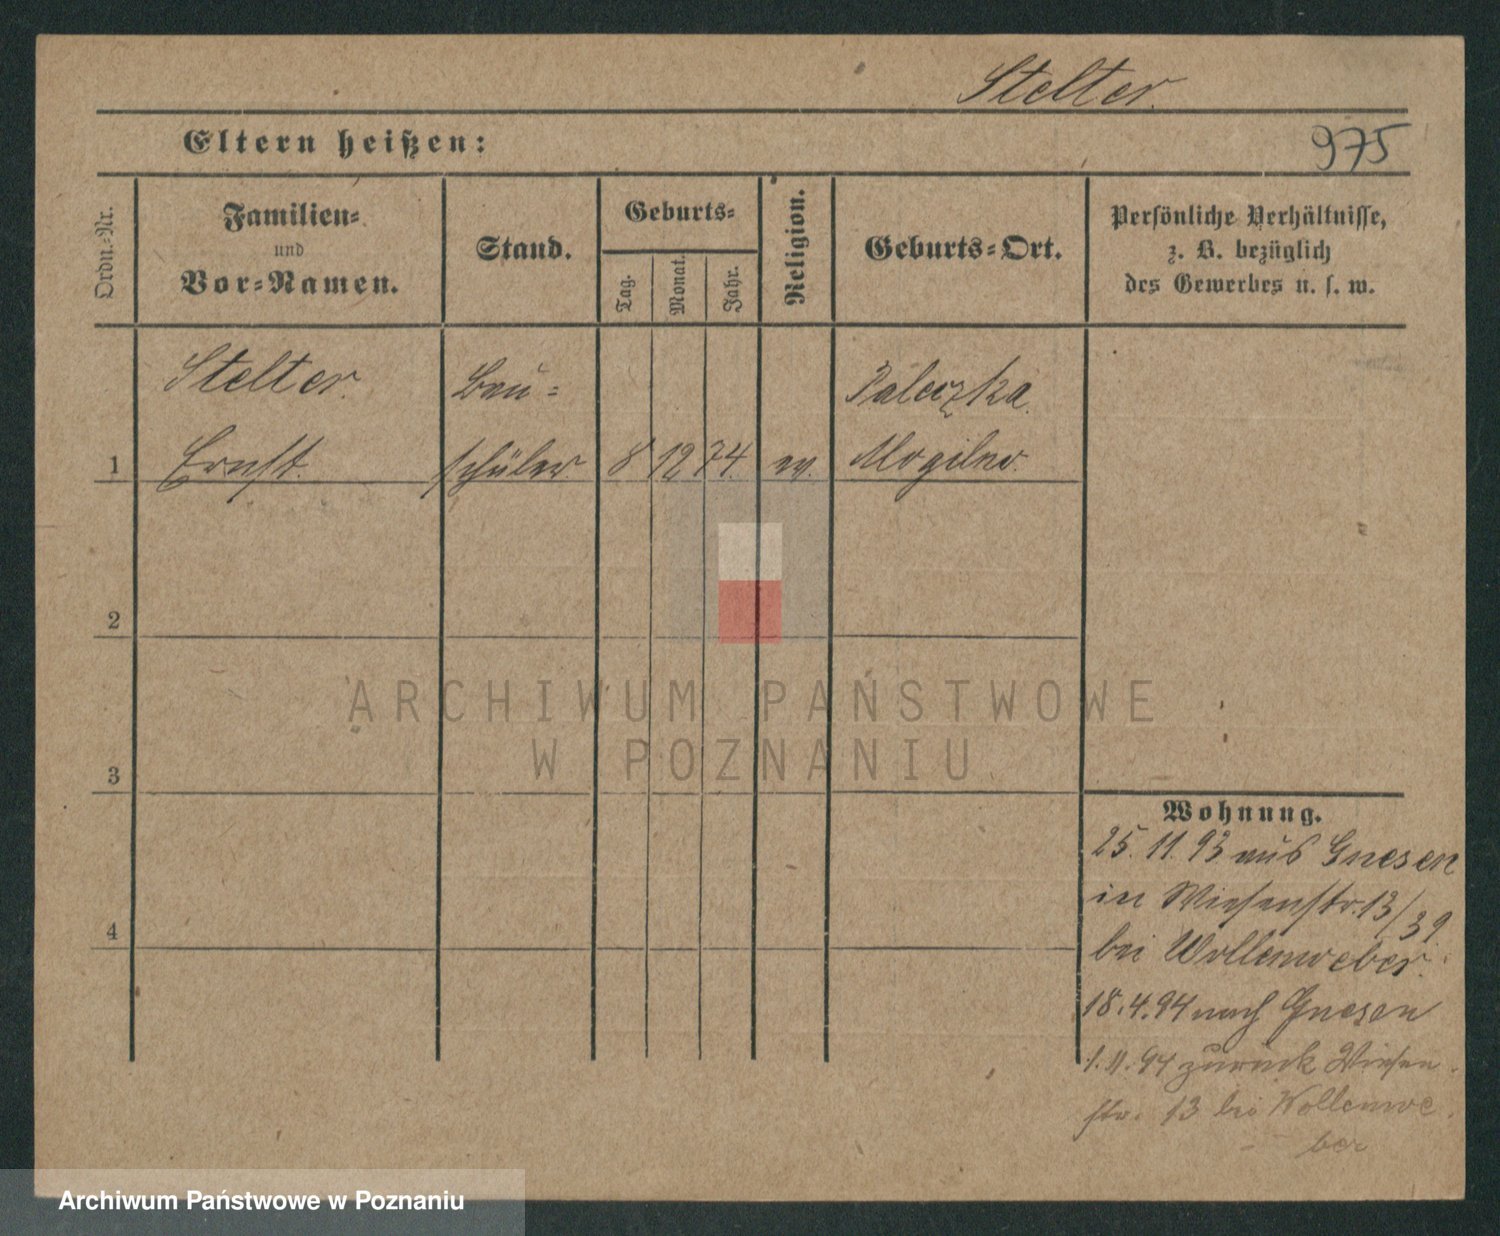 Stelter.
Eltern heißen:
975
Ordn.=Nr.
Familien=
und
Vor=Namen.
Stand.
Geburts=
Tag.
Monat.
Jahr.
Religion.
Geburts=Ort.
Persönliche Verhältnisse,
z. B. bezüglich
des Gewerbes u. s. w.
Stelter. Bau= Paleczka.
1 Ernst. schüler 8 12 74. ev. Mogilno.
2
3
4
ARCHIWUM PAŃSTWOWE
W POZNANIU
Wohnung.
25. 11. 93 aus Gnesen
in Wiesenstr. 13/39.
bei Wollenweber.
18.4.94 nach Gnesen
1.11.94 zurück Wiesen
str. 13 bei Wollenwe
ber
Archiwum Państwowe w Poznaniu